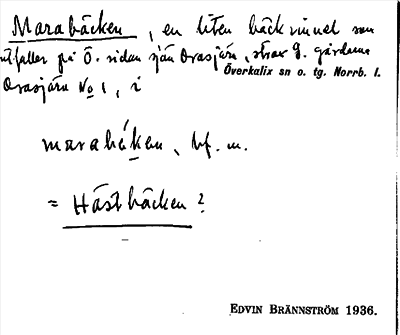 Marabäcken, en liten bäck rinnel som
utfaller på Ö. sidan sjön Orasjärv, strax g. gårdarna
Överkalix sn o. tg. Norrb. l.
Orasjärv No 1, i
marabäken, bf. m.
= Hästbäcken?
EDVIN BRÄNNSTRÖM 1936.